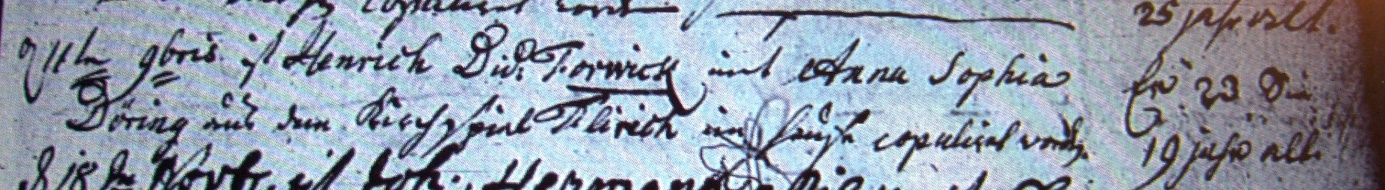 copuliert worden 25 jahr alt.
d 11tn 9bris ist Henrich Did: Forwick mit Anna Sophia Er 23 Sie
Döring aus dem Kirchspiel Flirich im Hause copuliert worden. 19 jahr alt.
d 18tn Novbr. ist Joh. Hermann